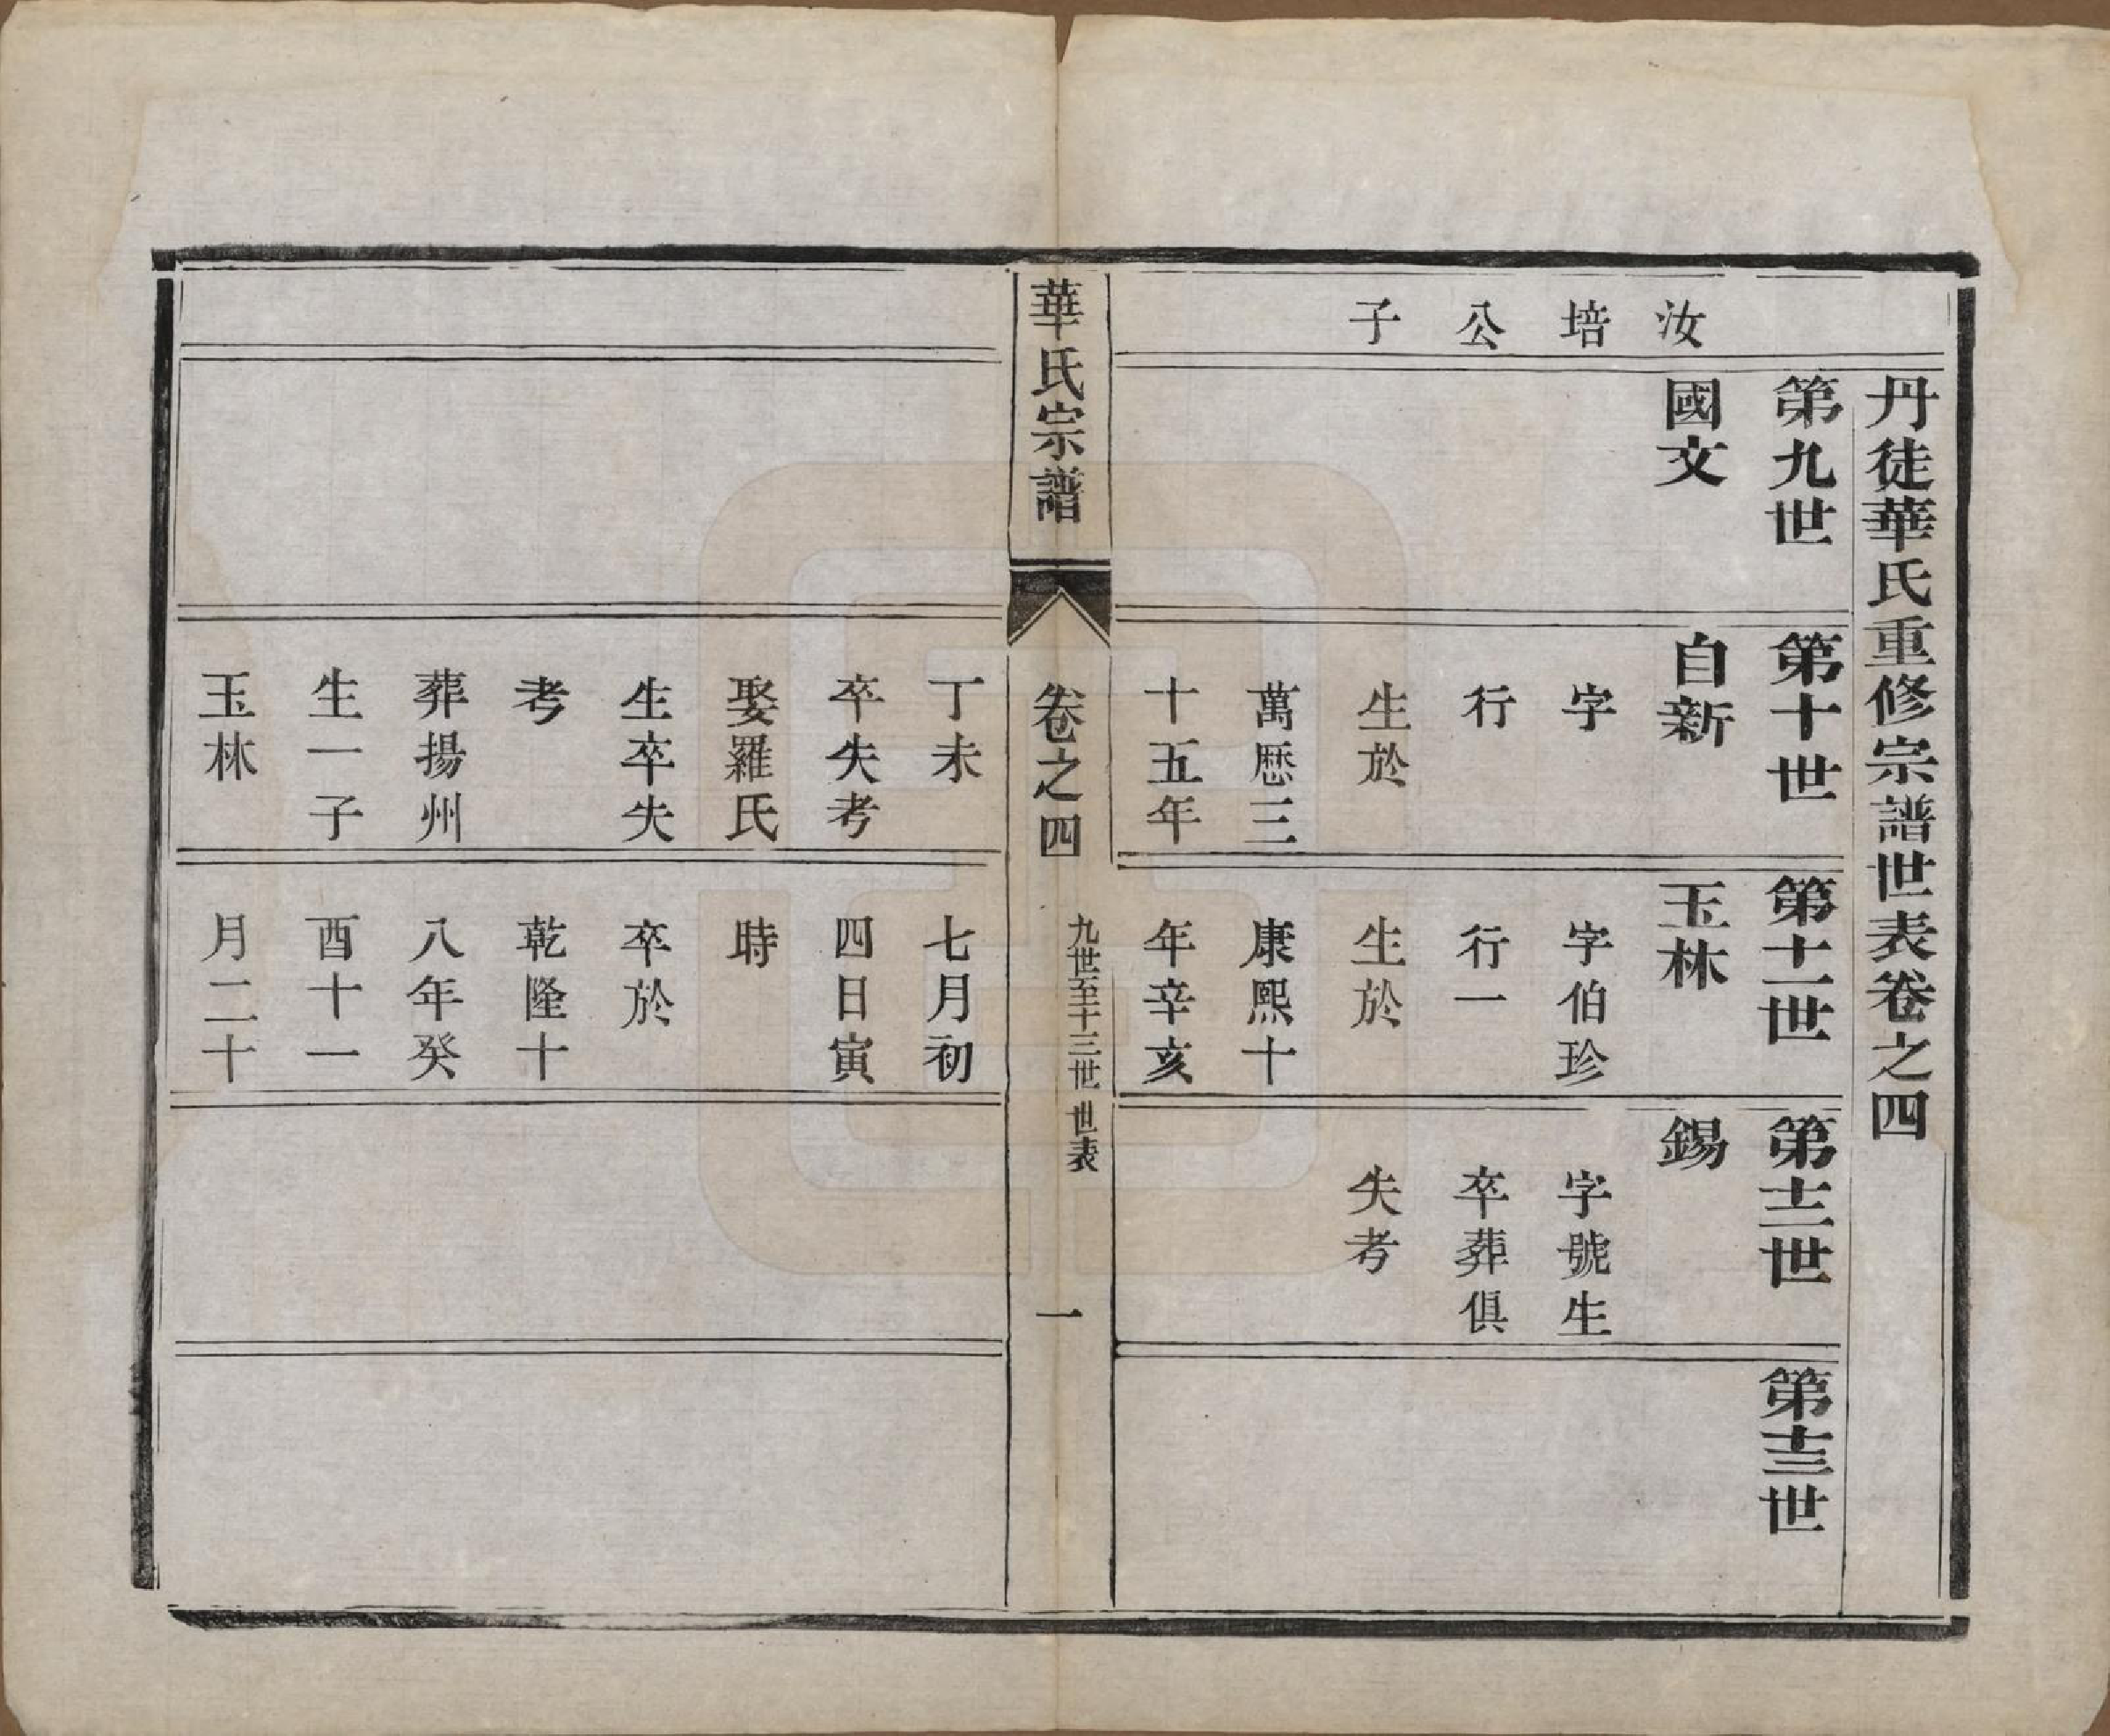 丹徒華氏重修宗譜世表卷之四
汝培公子
第九世
國文
第十世
自新
字
行
生於
萬厯三
十五年
丁未
卒失考
娶羅氏
生卒失
考
葬揚州
生一子
玉林
第十一世
玉林
字伯珍
行一
生於
康熙十
年辛亥
七月初
四日寅
時
卒於
乾隆十
八年癸
酉十一
月二十
第十二世
錫
字號生
卒葬俱
失考
第十三世
華氏宗譜
卷之四
九世至十三世 世表
一